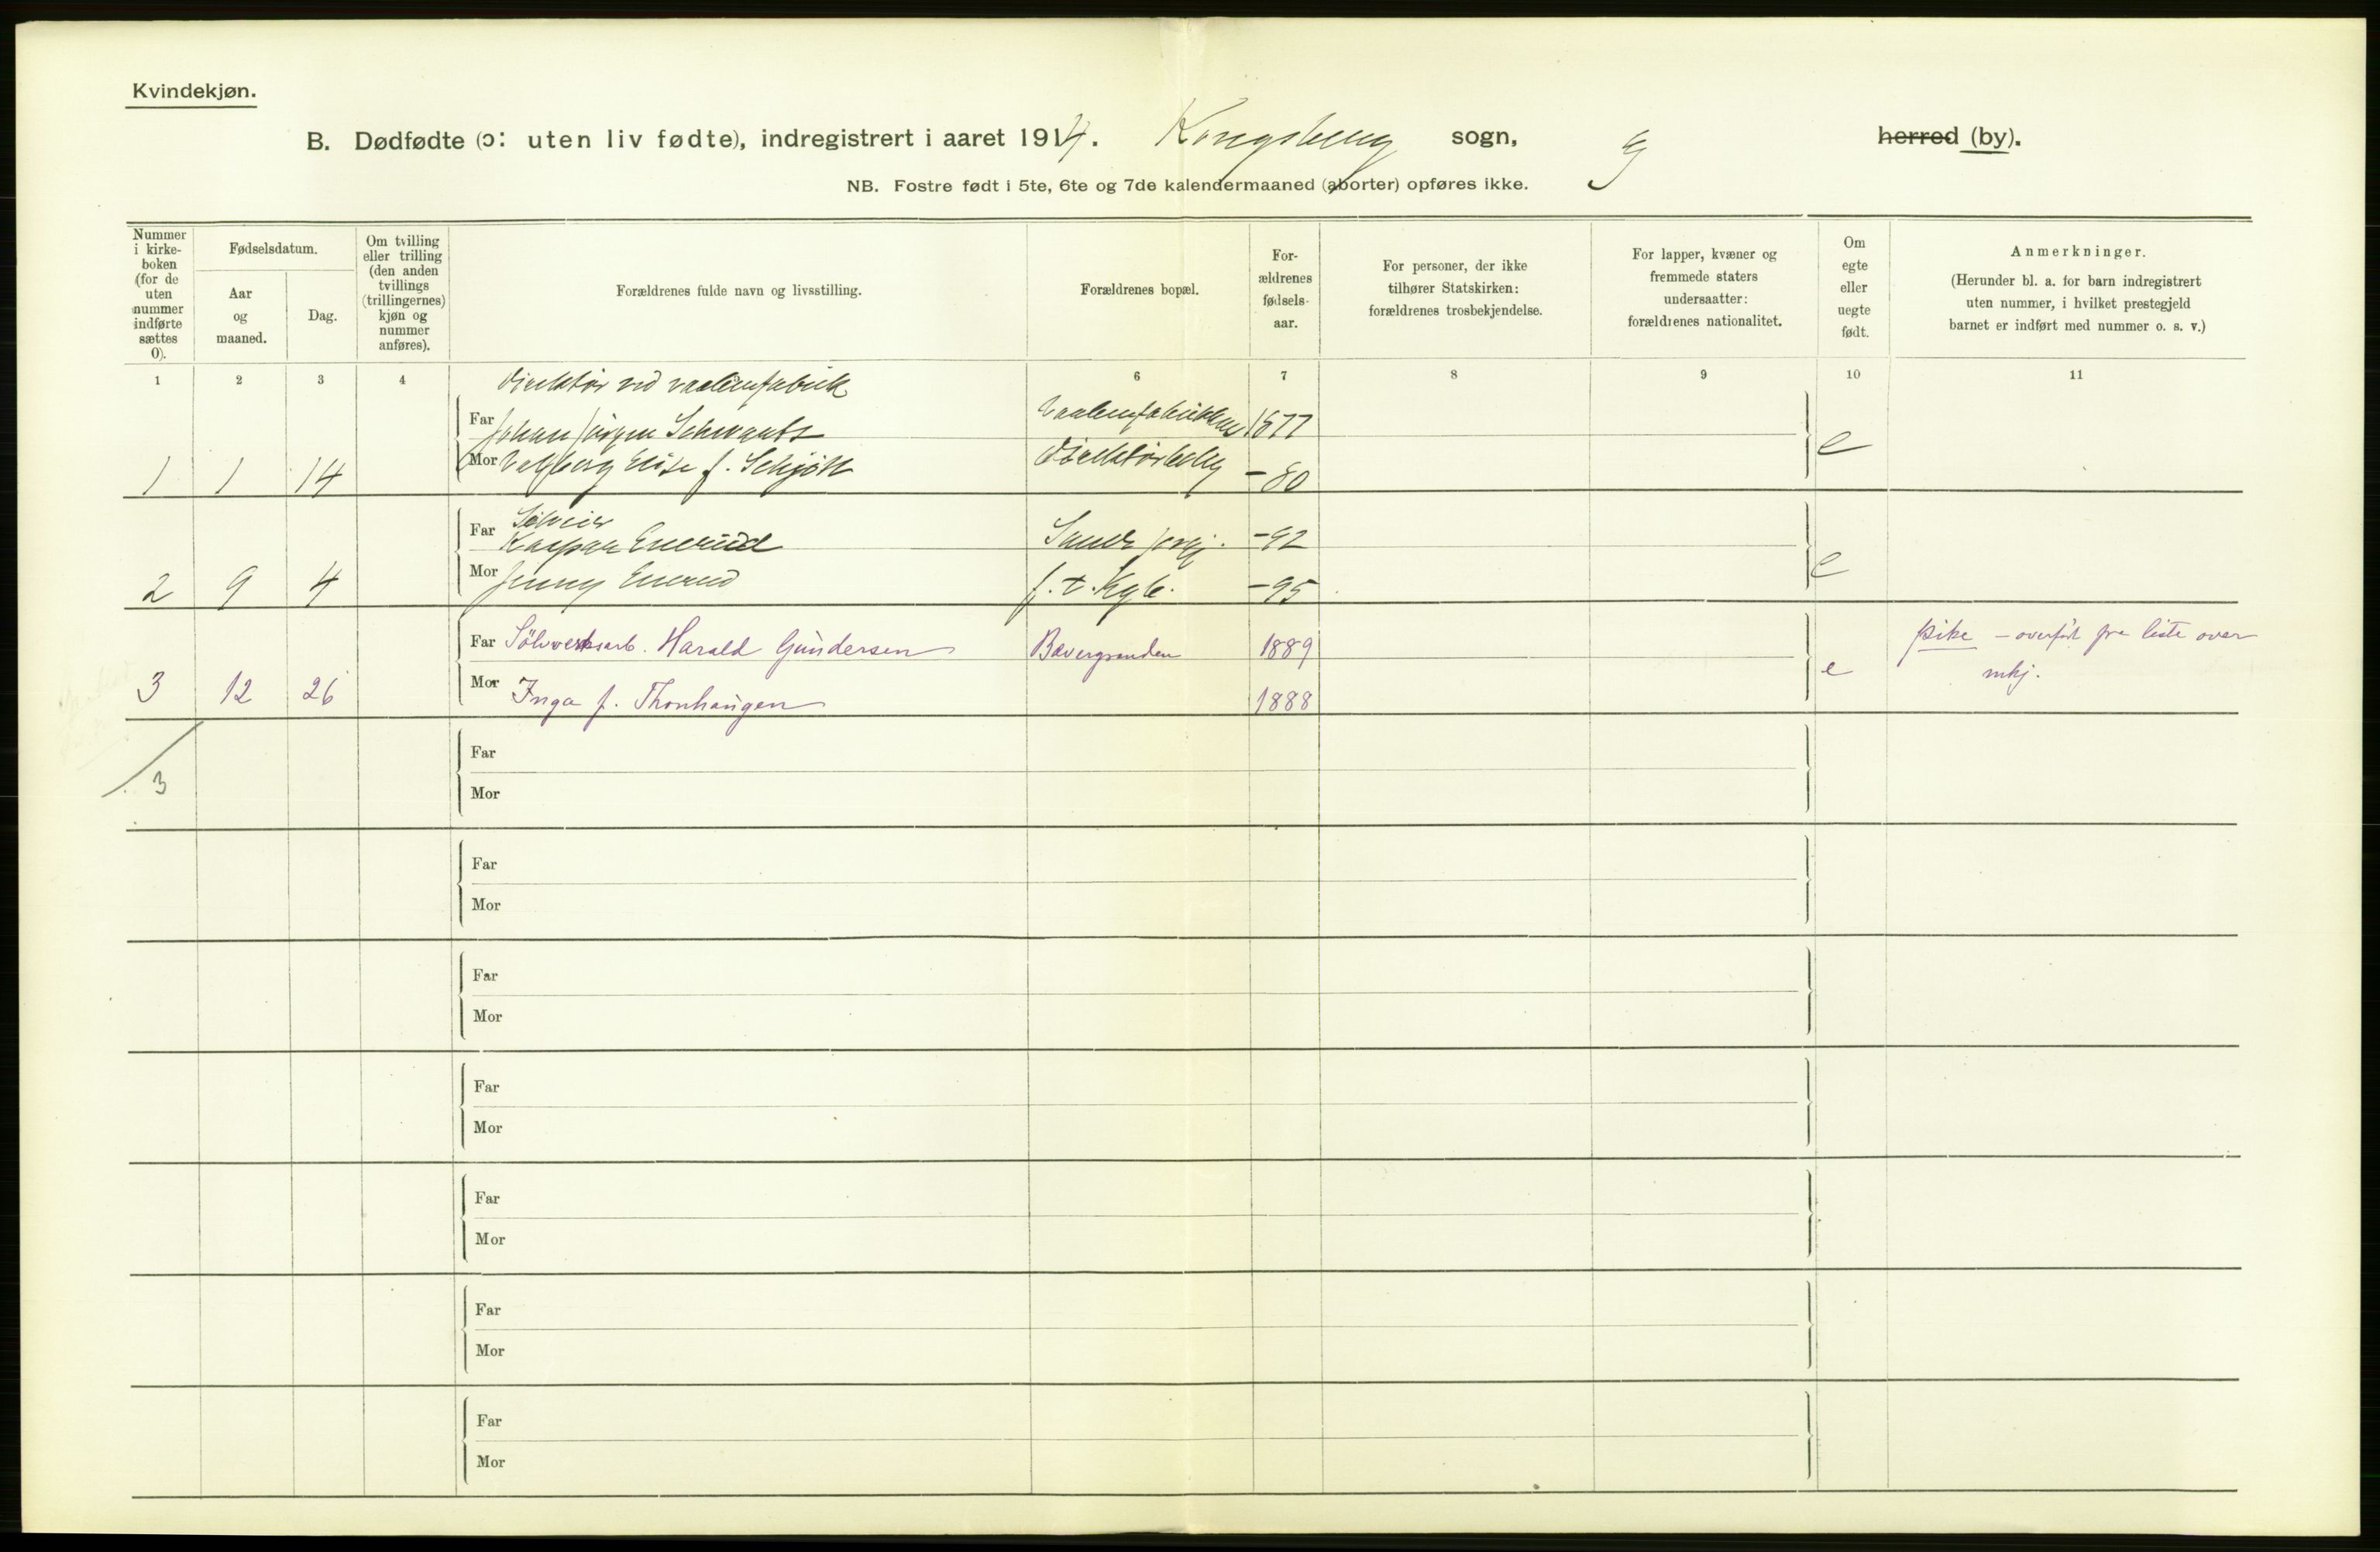 Kvindekjøn.
B. Dødfødte (ɔ: uten liv fødte), indregistrert i aaret 1914. Kongsberg sogn, herred (by).
NB. Fostre født i 5te, 6te og 7de kalendermaaned (aborter) opføres ikke.
Nummer i kirke-boken (for de uten nummer indførte sættes 0).
Fødselsdatum.
Aar og maaned.
Dag.
Om tvilling eller trilling (den anden tvillings (trillingernes) kjøn og nummer anføres).
Forældrenes fulde navn og livsstilling.
Forældrenes bopæl.
For-ældrenes fødsels-aar.
For personer, der ikke tilhører Statskirken: forældrenes trosbekjendelse.
For lapper, kvæner og fremmede staters undersaatter: forældrenes nationalitet.
Om egte eller uegte født.
Anmerkninger.
(Herunder bl. a. for barn indregistrert uten nummer, i hvilket prestegjeld barnet er indført med nummer o. s. v.)
1 2 3 4 6 7 8 9 10 11
Direktør ved vaabenfabrik
Far Johan Jørgen Schwartz Vaabenfabrikkens 1877
1 1 14 Mor Valborg Elise f. Schjøtt Direktørbolig - 80 e
Sølvier
Far Kaspar Enerud - 92
2 9 4 Mor Jenny Enerud f. t. Kgb. - 95 e
Far Sölvverksarb. Harald Gundersen Bævergrænden 1889 pike - overført fra liste over
3 12 26 Mor Inga f. Thonhaugen 1888 e mkj.
Far
3
Mor
Far
Mor
Far
Mor
Far
Mor
Far
Mor
Far
Mor
Far
Mor